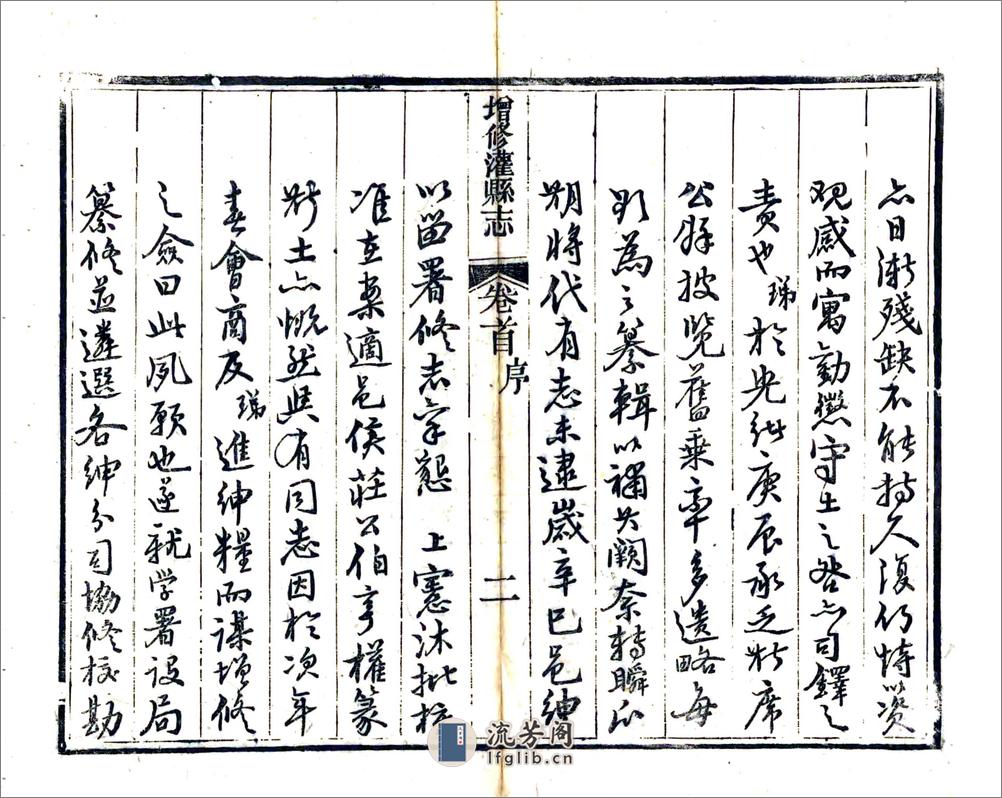 亦日漸殘缺不能持久復何恃以資
觀感而寓勸懲守土之咎亦司鐸之
責也瑞於光緒庚辰承乏斯席
公餘披覽舊乘率多遺略每
欲為之纂輯以補其闕奈轉瞬瓜
期將代有志未逮歲辛巳邑紳
增修灌縣志
卷首 序
二
以留署修志稟懇 上憲沐批核
准在案適邑侯莊公伯亨權篆
斯土亦慨然與有同志因於次年
春會商及瑞進紳糧而謀增修
之僉曰此夙願也遂就学署设局
纂修並遴選各紳分司協修校勘
流芳阁
lfglib.cn